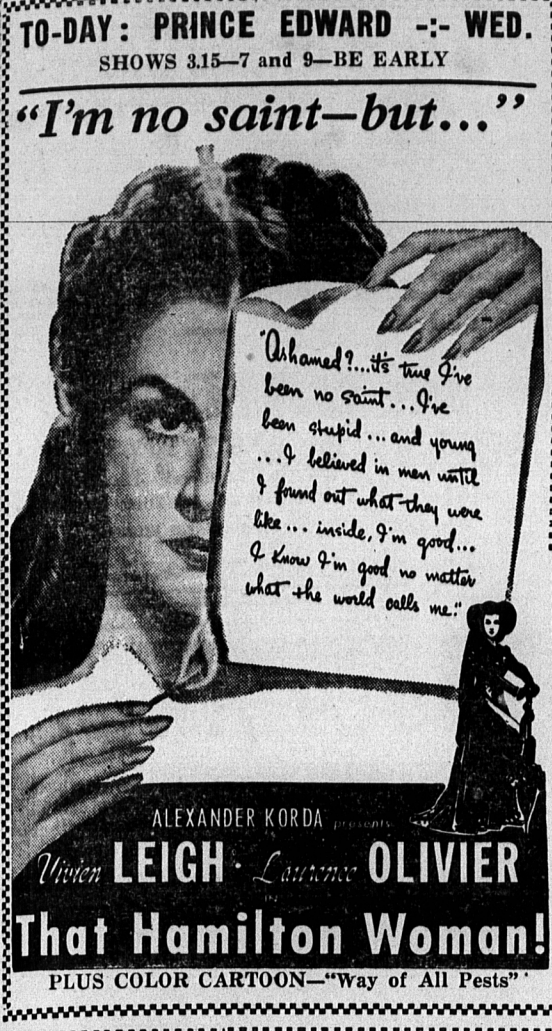 TO-DAY: PRINCE EDWARD -:- WED.
SHOWS 3.15—7 and 9—BE EARLY
"I'm no saint—but..."
"Ashamed?...it's true I've
been no saint...I've
been stupid...and young
...I believed in men until
I found out what they were
like... inside, I'm good...
I know I'm good no matter
what the world calls me."
ALEXANDER KORDA presents
Vivien LEIGH · Laurence OLIVIER
IN
That Hamilton Woman!
PLUS COLOR CARTOON—"Way of All Pests"